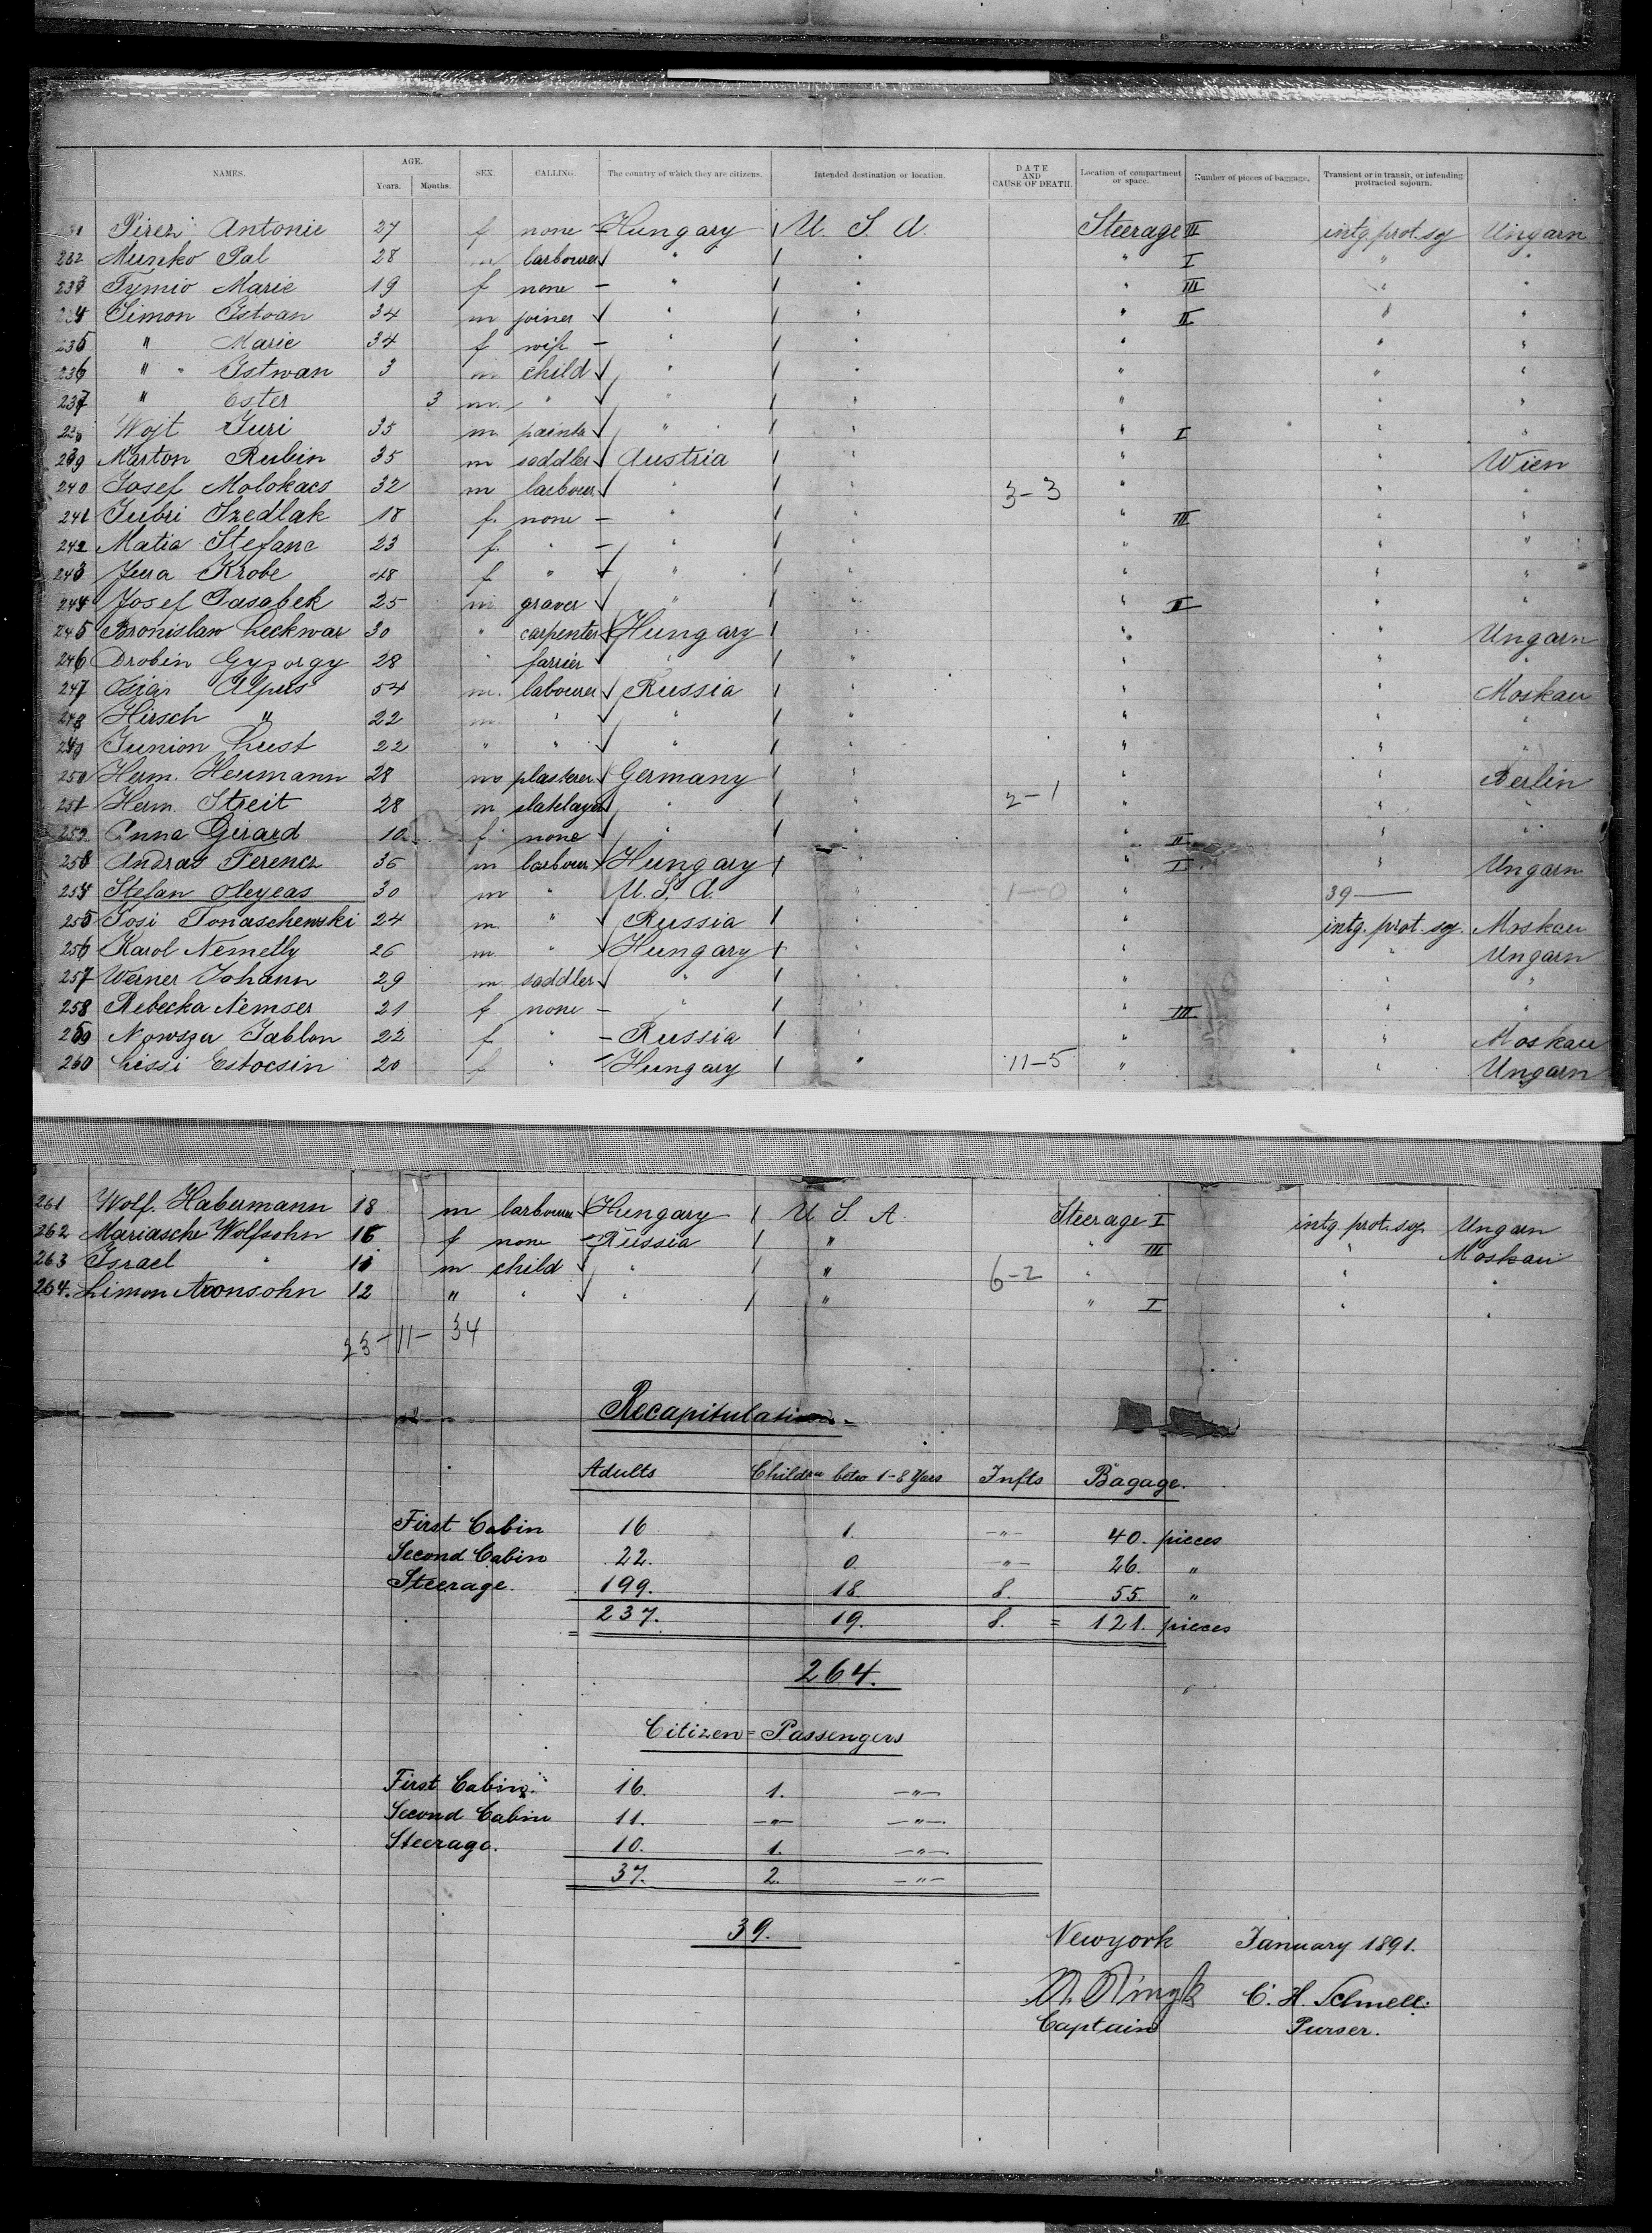 NAMES. AGE. Years. Months. SEX. CALLING. The country of which they are citizens. Intended destination or location. DATE AND CAUSE OF DEATH. Location of compartment or space. Number of pieces of baggage. Transient or in transit, or intending protracted sojourn.
Antonie 27 f none Hungary U. S. A. Steerage II intg. prot. soj Ungarn
232 Munko Pal 28 larbourer " " " I " "
233 Tymio Marie 19 f none " " " III " "
234 Simon Estvan 34 m joiner " " " II " "
235 " Marie 34 f wife " " " " "
236 " Istwan 3 m child " " " " "
237 " Ester 3 m. " " " " " "
Wojt Juri 35 m painter " " " I " "
239 Marton Rubin 35 m saddler Austria " " " Wien
240 Josef Molokacs 32 m larbourer " " 3-3 " " "
241 Jubri Szedlak 18 f. none " " " III " "
242 Matia Stefanc 23 f. " " " " " "
243 Jura Krobe 48 f " " " " " "
244 Josef Pasabek 25 m graver " " " II " "
245 Bronislaw Leckwar 30 " carpenter Hungary " " " Ungarn
246 Drobin Gyzorgy 28 " farrier " " " " "
247 Alpus 54 m. labourer Russia " " " Moskau
248 Hirsch " 22 m " " " " " "
249 Junion Lust 22 " " " " " " "
250 Herm. Heumann 28 m plasterer Germany " " " Berlin
251 Herm. Streit 28 m slatelayer " " 2-1 " " "
252 Anna Girard 10 f none " " " II " "
253 Andras Ferencz 36 m larbourer Hungary " " I " Ungarn
254 Stefan Oleyeas 30 m " U. S. A. " 1-0 " 39 —
255 Josi Tonaschewski 24 m. " Russia " " intg. prot. soj. Moskau
256 Karol Nemetly 26 m " Hungary " " " Ungarn
257 Werner Johann 29 m. saddler " " " " "
258 Rebecka Nemser 21 f none " " " III " "
259 Nowszu Jablon 22 f " Russia " " " Moskau
260 Lissi Estocsin 20 f " Hungary " 11-5 " " Ungarn
261 Wolf. Habermann 18 m larbourer Hungary U. S. A. Steerage I intg prot. soj. Ungarn
262 Mariasche Wolfsohn 16 f none Russia " " III " Moskau
263 Israel " 11 m child " " 6-2 " " "
264. Limon Aronsohn 12 " " " " " I " "
23 - 11 - 34
Recapitulation.
Adults Children betw 1-8 Years Infts Bagage.
First Cabin 16 1. -"- 40. pieces
Second Cabin 22. 0 -"- 26. "
Steerage. 199. 18. 8. 55. "
237. 19. 8. = 121. pieces
264.
Citizen = Passengers
First Cabin. 16. 1. -"-
Second Cabin 11. -"- -"-
Steerage. 10. 1. -"-
37. 2. -"-
39.
Newyork January 1891.
C. H. Schmell.
Captain Purser.